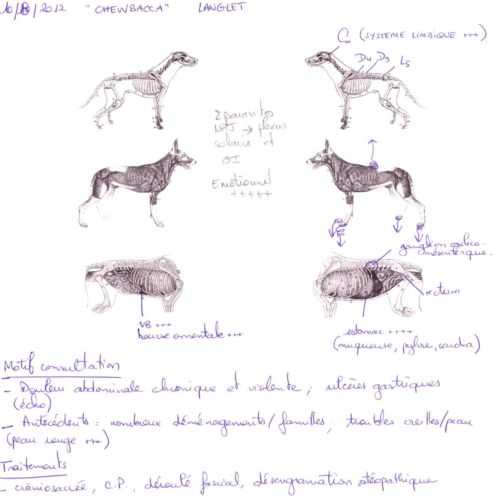 10/8/2012 "CHEWBACCA" LANGLET
C (SYSTEME LIMBIQUE +++)
D4 D9 L5
2 parasites
NRJ → plexus
solaire et
OI
Emotionnel
+++++
ganglion cœliaco-
mésentérique
rectum
VB +++
bourse omentale +++
estomac ++++
(muqueuse, pylore, cardia)
Motif consultation
- Douleur abdominale chronique et violente ; ulcères gastriques
(écho)
- Antécédents : nombreux déménagements / familles ; troubles oreilles/peau
(peau rouge +++)
Traitements
- craniosacrée, C.P., déroulé fascial, désengrammation ostéopathique